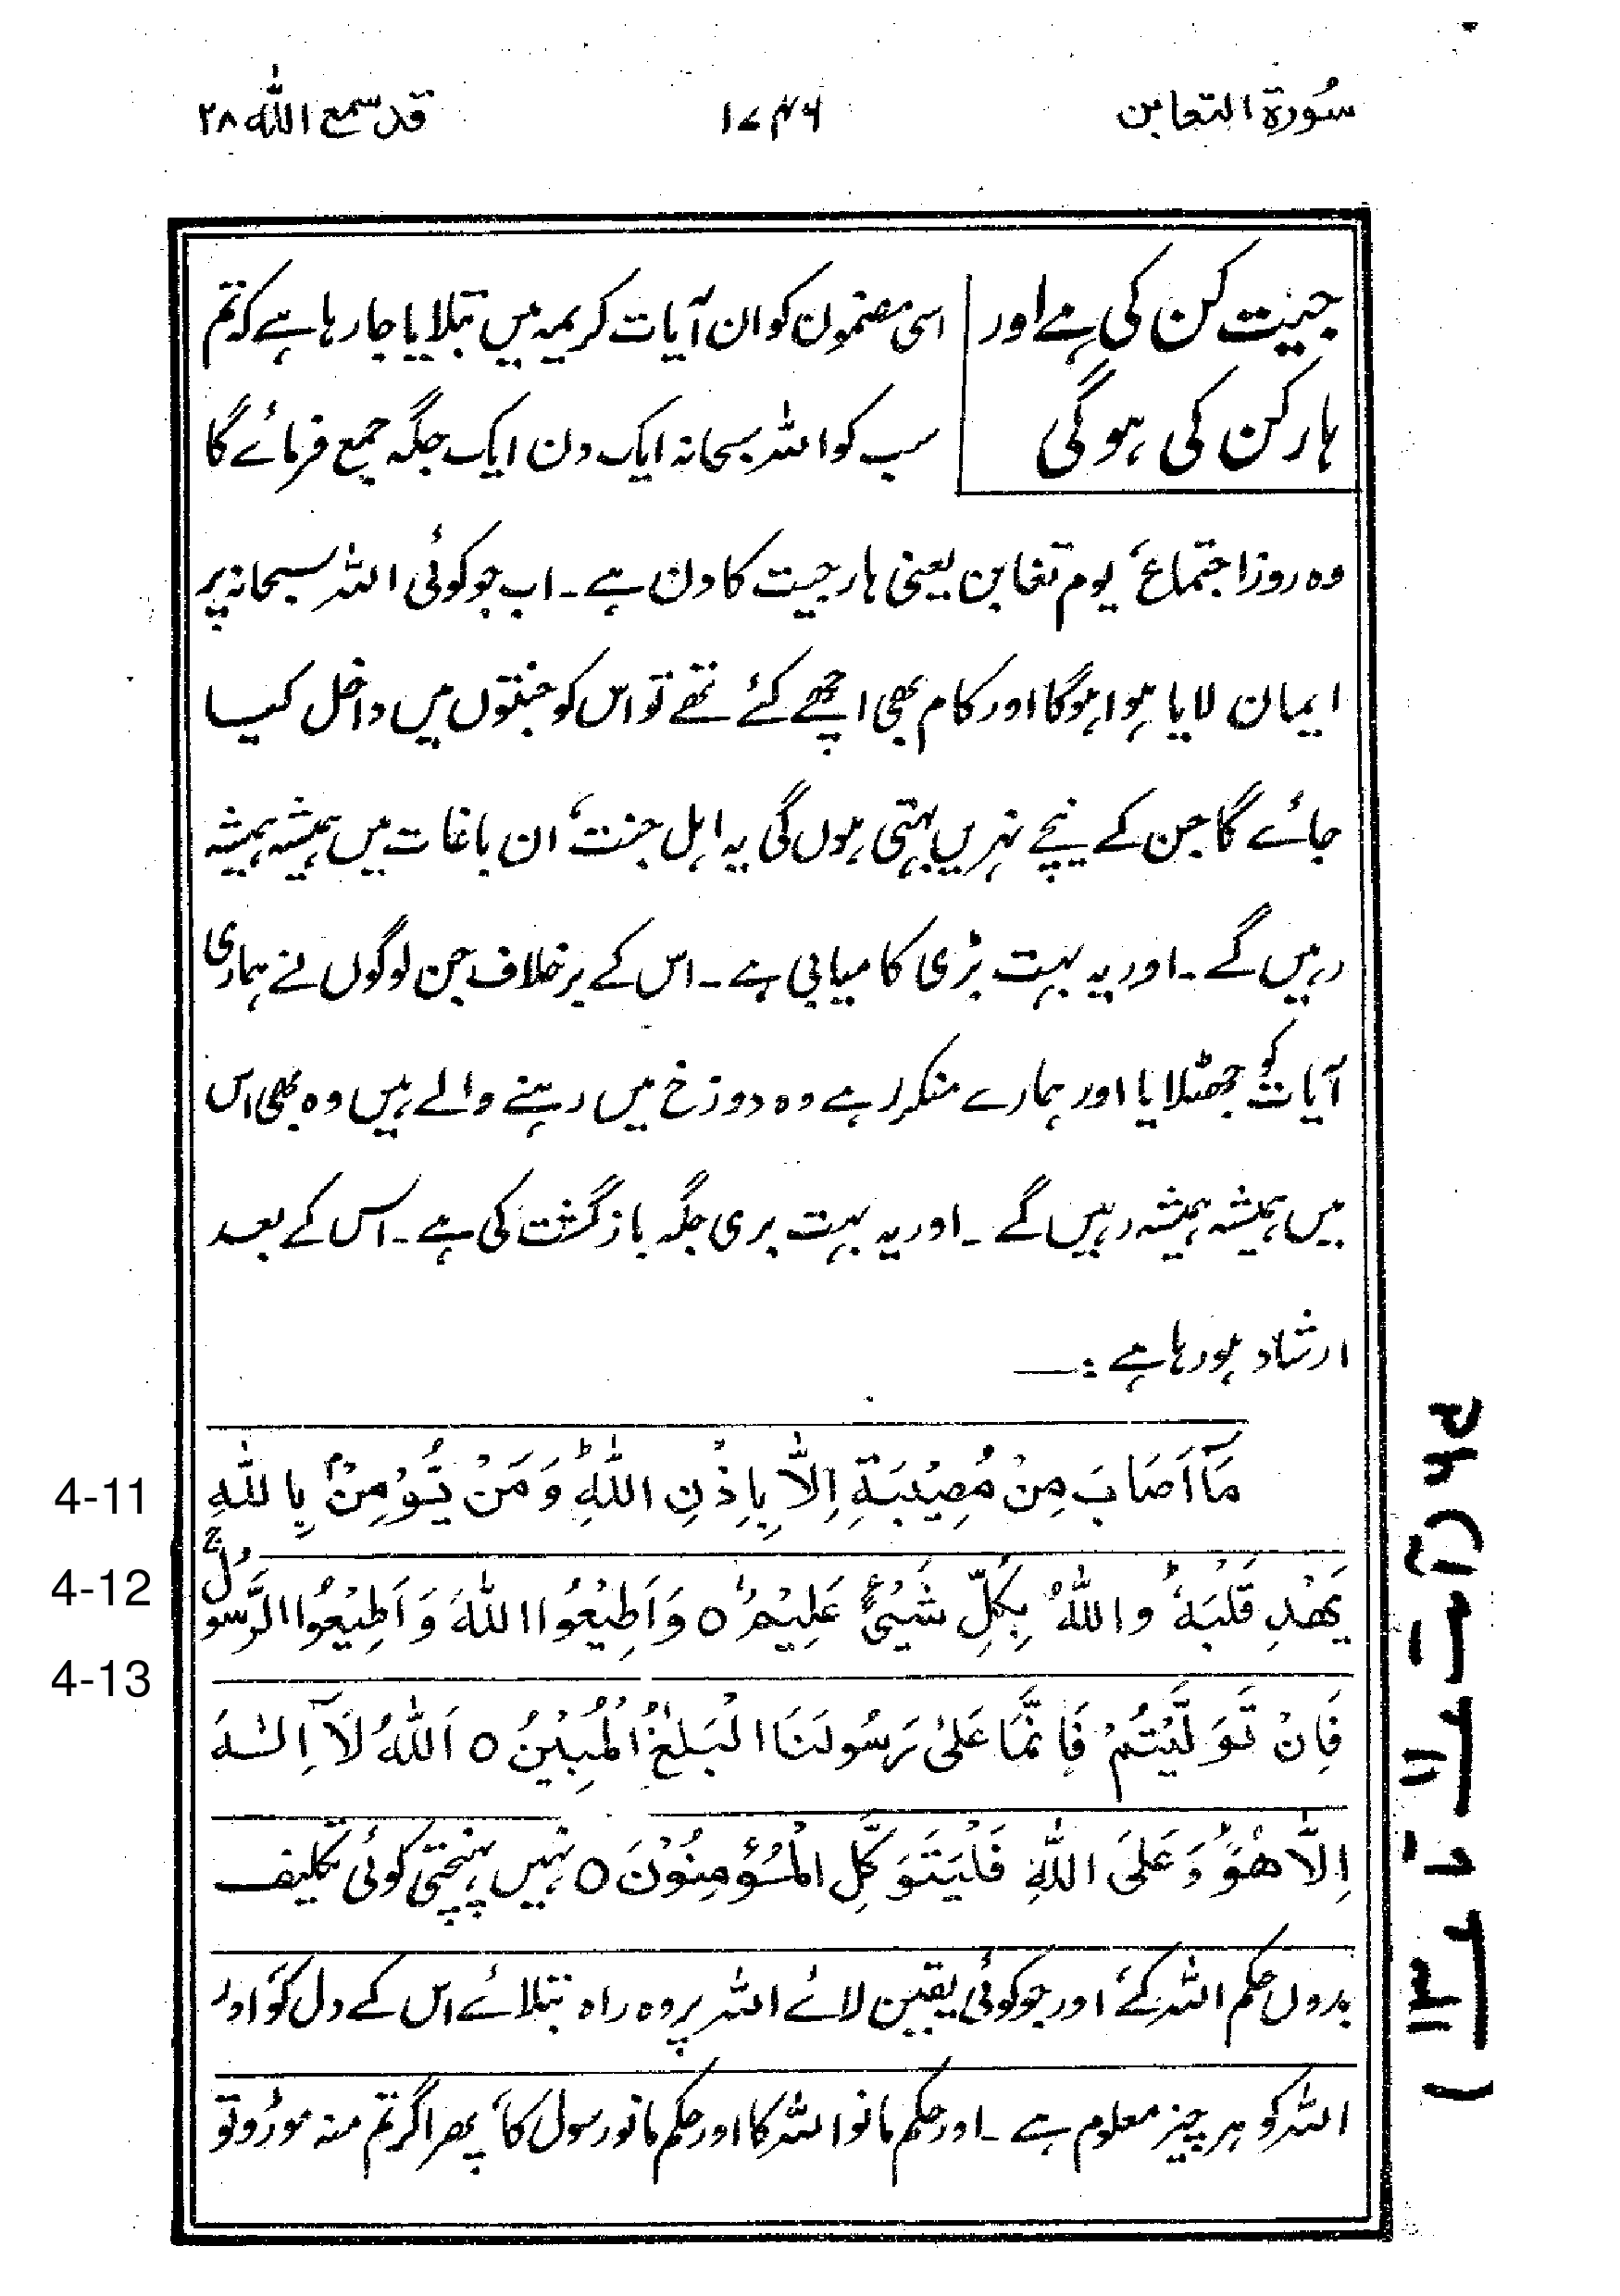 سُورة التعابن
۱۷۴۶
قد سمع اللّٰہ ۲۸
جیت کن کی ہے اور
ہار کن کی ہوگی
اسی مضمون کو ان آیات کریمہ میں بتلایا جا رہا ہے کہ تم
سب کو اللہ سبحانہ ایک دن ایک جگہ جمع فرمائے گا
وہ روز اجتماع، یوم تغابن یعنی ہار جیت کا دن ہے۔ اب جو کوئی اللہ سبحانہ پر
ایمان لایا ہوا ہوگا اور کام بھی اچھے کئے تھے تو اس کو جنتوں میں داخل کیا
جائے گا جن کے نیچے نہریں بہتی ہوں گی یہ اہل جنت، ان باغات میں ہمیشہ ہمیشہ
رہیں گے۔ اور یہ بہت بڑی کامیابی ہے۔ اس کے برخلاف جن لوگوں نے ہماری
آیات کو جھٹلایا اور ہمارے منکر رہے وہ دوزخ میں رہنے والے ہیں وہ بھی اس
میں ہمیشہ ہمیشہ رہیں گے۔ اور یہ بہت بری جگہ بازگشت کی ہے۔ اس کے بعد
ارشاد ہو رہا ہے :—
مَآ اَصَابَ مِنْ مُصِیْبَۃٍ اِلَّا بِاِذْنِ اللّٰہِ ؕ وَ مَنْ یُّؤْمِنْۢ بِاللّٰہِ
یَھْدِ قَلْبَہٗ ؕ واللّٰہُ بِکُلِّ شَیْیءٍ عَلِیْمٌ ۝ وَاَطِیْعُوا اللّٰہَ وَ اَطِیْعُوا الرَّسُوْلَ ۚ
فَاِنْ تَوَلَّیْتُمْ فَاِنَّمَا عَلیٰ رَسُوْلِنَا الْبَلٰغُ الْمُبِیْنُ ۝ اَللّٰہُ لَآ اِلٰہَ
اِلَّا ھُوَ ؕ وَعَلَی اللّٰہِ فَلْیَتَوَکَّلِ الْمُؤْمِنُوْنَ ۝ نہیں پہنچتی کوئی تکلیف
بدوں حکم اللہ کے، اور جو کوئی یقین لائے اللہ پر وہ راہ بتلائے اس کے دل کو، اور
اللہ کو ہر چیز معلوم ہے۔ اور حکم مانو اللہ کا اور حکم مانو رسول کا، پھر اگر تم منہ موڑو تو
4-11
4-12
4-13